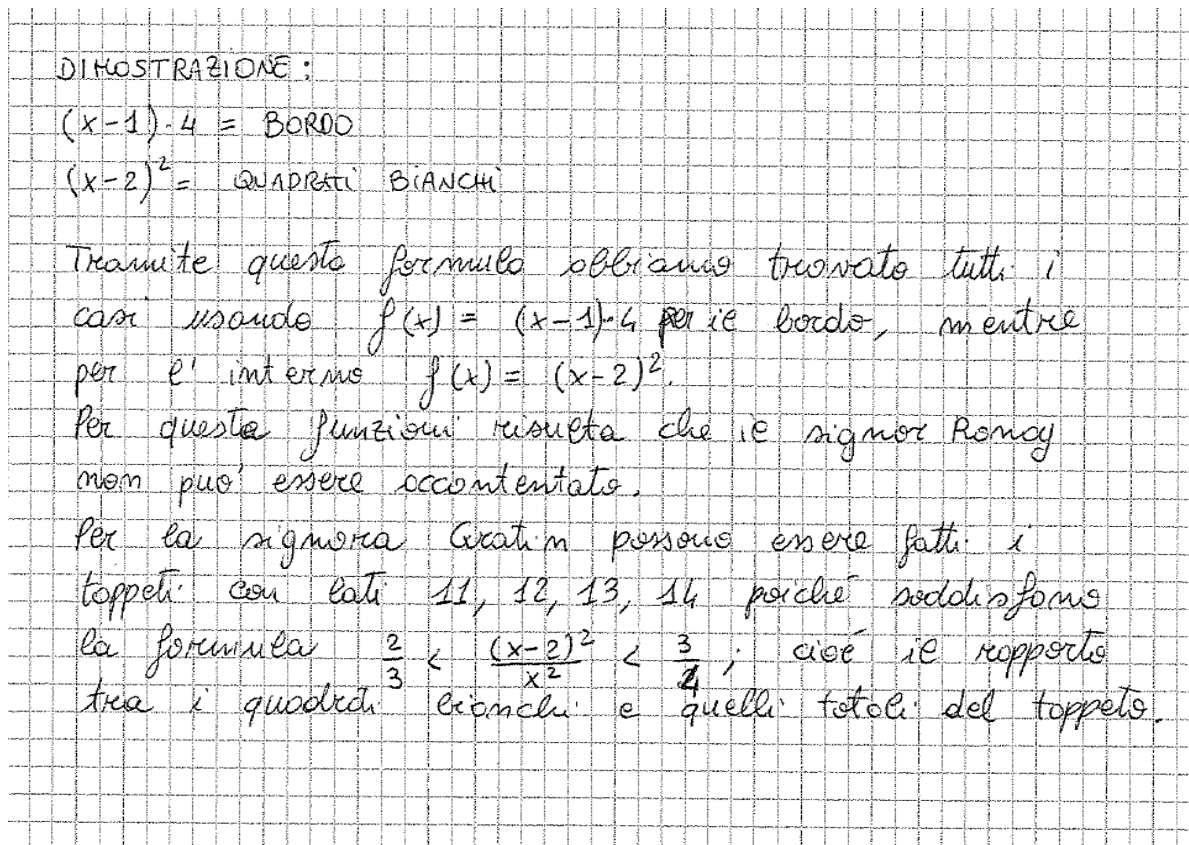 DIMOSTRAZIONE:
(x-1)·4 = BORDO
(x-2)² = QUADRATI BIANCHI
Tramite questa formula abbiamo trovato tutti i
casi usando f(x) = (x-1)·4 per il bordo, mentre
per l'interno f(x) = (x-2)².
Per queste funzioni risulta che il signor Roncy
non può essere accontentato.
Per la signora Gratin possono essere fatti i
tappeti con lati 11, 12, 13, 14 poiché soddisfano
la formula 2/3 < (x-2)²/x² < 3/4; cioè il rapporto
tra i quadrati bianchi e quelli totali del tappeto.